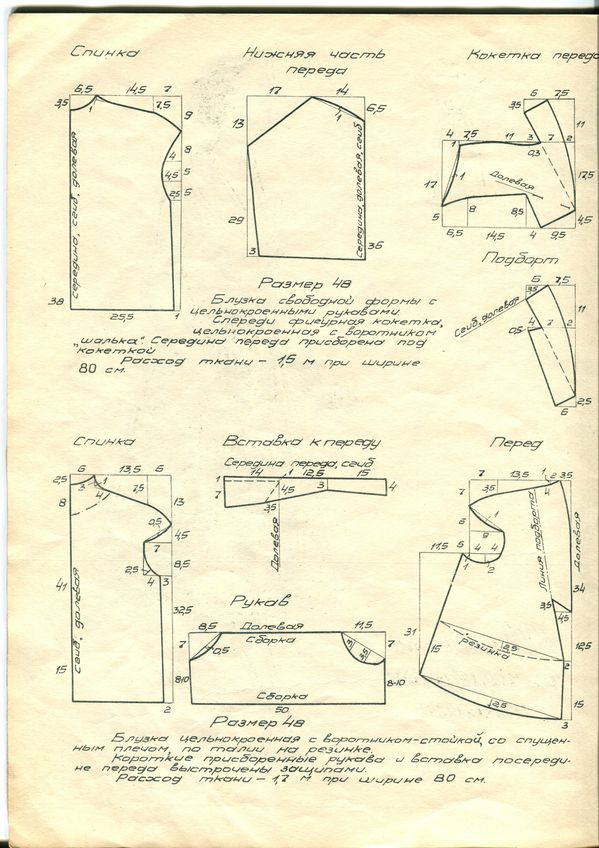 Спинка
Нижняя часть
переда
Кокетка переда
6,5 14,5 7
3,5 1 7,5 9
8
4
4,5 5
2,5 5
середина, сгиб, долевая
38
25,5 1
17 14
13 1 6,5
29
3 36
Середина, долевая, сгиб
6 7,5
3,5
11
4 7,5 11 3 7 2
0,3
1
17
Долевая
17,5
5 8 8,5
4,5
6,5 14,5 4 9,5
Подборт
6 7,5
3,5
11
Сгиб, долевая
4 7 2
0,5
2,5
6
Размер 48
Блузка свободной формы с
цельнокроенными рукавами.
Спереди фигурная кокетка,
цельнокроенная с воротником
„шалька“. Середина переда присборена под
кокеткой
Расход ткани – 1,5 м при ширине
80 см.
Спинка
Вставка к переду
Перед
6 13,5 6
2,5 3 1
8 4 7,5 13
0,5
4,5
7
8,5
2,5
4 3
41
сгиб, долевая
32,5
15
2
Середина переда, сгиб
14 1 12,5 15
1
7 4,5 3 4
3,5
Долевая
7 13,5 1 2 3,5
7 3,5 4
1
6
9
11,5 5 4 4
1 2
Линия подборта
Долевая
34
3,5
4,5
31
15
2,5
резинка
12,5
2
2,5
15
3
Рукав
8,5 Долевая 11,5
7 Сборка 7
0,5
3,5 3,5
8-10 8-10
Сборка
50
Размер 48
Блузка цельнокроенная с воротником-стойкой, со спущен-
ным плечом, по талии на резинке.
Короткие присборенные рукава и вставка посереди-
не переда выстрочены защипами.
Расход ткани – 1,7 м при ширине 80 см.